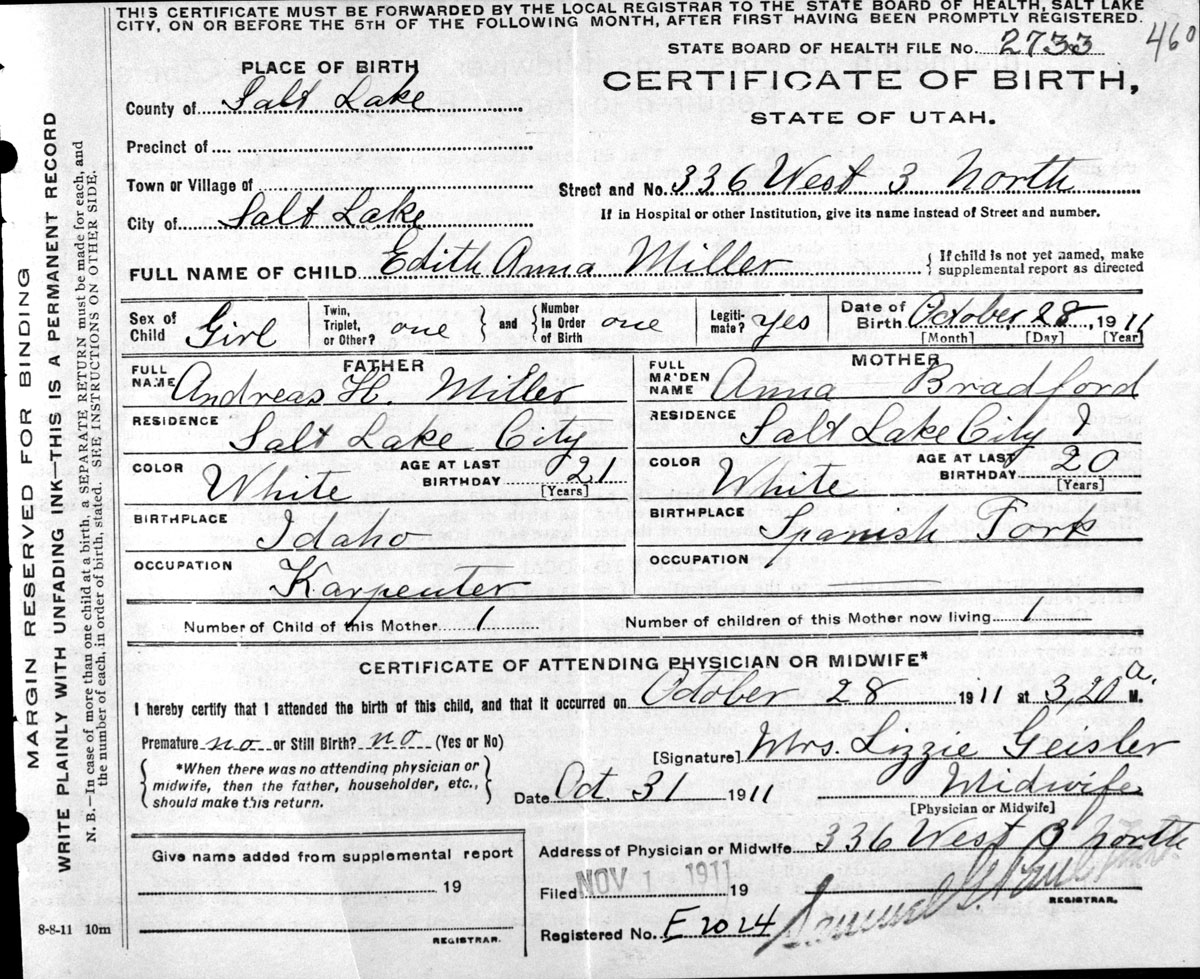 THIS CERTIFICATE MUST BE FORWARDED BY THE LOCAL REGISTRAR TO THE STATE BOARD OF HEALTH, SALT LAKE
CITY, ON OR BEFORE THE 5TH OF THE FOLLOWING MONTH, AFTER FIRST HAVING BEEN PROMPTLY REGISTERED.
460
STATE BOARD OF HEALTH FILE No. 2733
PLACE OF BIRTH
CERTIFICATE OF BIRTH,
STATE OF UTAH.
County of Salt Lake
Precinct of
Town or Village of
Street and No. 336 West 3 North
City of Salt Lake
If in Hospital or other Institution, give its name instead of Street and number.
FULL NAME OF CHILD Edith Anna Miller
If child is not yet named, make
supplemental report as directed
Sex of Child Girl
Twin, Triplet, or Other? one
and
Number in Order of Birth one
Legiti-mate? yes
Date of Birth October 28, 1911
[Month] [Day] [Year]
FATHER
FULL NAME Andreas H. Miller
RESIDENCE Salt Lake City
COLOR White AGE AT LAST BIRTHDAY 21
[Years]
BIRTHPLACE Idaho
OCCUPATION Karpenter
MOTHER
FULL MAIDEN NAME Anna Bradford
RESIDENCE Salt Lake City
COLOR White AGE AT LAST BIRTHDAY 20
[Years]
BIRTHPLACE Spanish Fork
OCCUPATION
Number of Child of this Mother 1 Number of children of this Mother now living 1
CERTIFICATE OF ATTENDING PHYSICIAN OR MIDWIFE*
I hereby certify that I attended the birth of this child, and that it occurred on October 28 1911 at 3,20 a. M.
Premature no or Still Birth? no (Yes or No)
*When there was no attending physician or
midwife, then the father, householder, etc.,
should make this return.
[Signature] Mrs. Lizzie Geisler
Date Oct. 31 1911 Midwife
[Physician or Midwife]
Give name added from supplemental report
19
REGISTRAR.
Address of Physician or Midwife 336 West 3 North
Filed NOV 1 1911 19
Samuel G.
REGISTRAR.
Registered No. E 2024
8-8-11 10m
MARGIN RESERVED FOR BINDING
WRITE PLAINLY WITH UNFADING INK—THIS IS A PERMANENT RECORD
N. B.—In case of more than one child at a birth, a SEPARATE RETURN must be made for each, and
the number of each, in order of birth, stated. SEE INSTRUCTIONS ON OTHER SIDE.